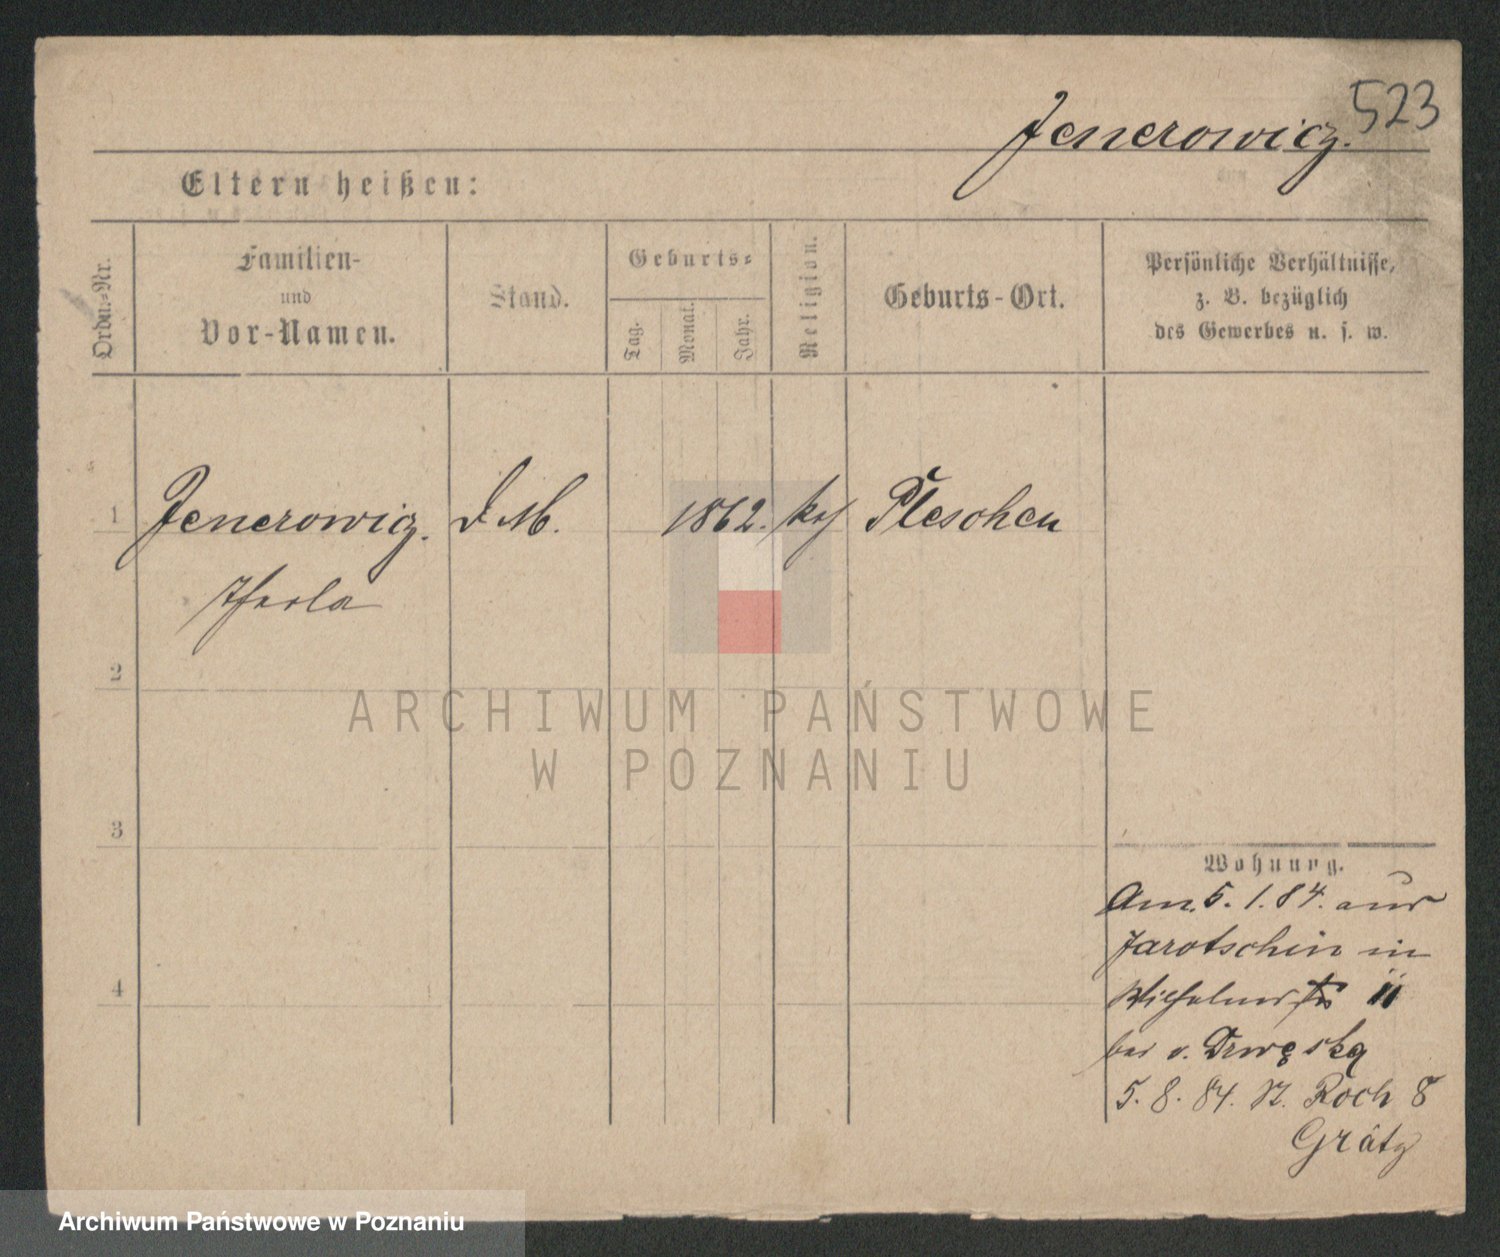 523
Jenerowicz.
Eltern heißen:
Ordn.-Nr.
Familien-
und
Vor-Namen.
Stand.
Geburts-
Tag.
Monat.
Jahr.
Religion.
Geburts-Ort.
Persönliche Verhältnisse,
z. B. bezüglich
des Gewerbes u. s. w.
1
Jenerowicz. D. M. 1862. kth Pleschen
Thecla
2
ARCHIWUM PAŃSTWOWE
W POZNANIU
3
Wohnung.
Am 5. 1. 84. aus
Jarotschin in
4
Wilhelmstr 11
bei v. Drwęska
5. 8. 84. St. Roch 8
Grätz
Archiwum Państwowe w Poznaniu